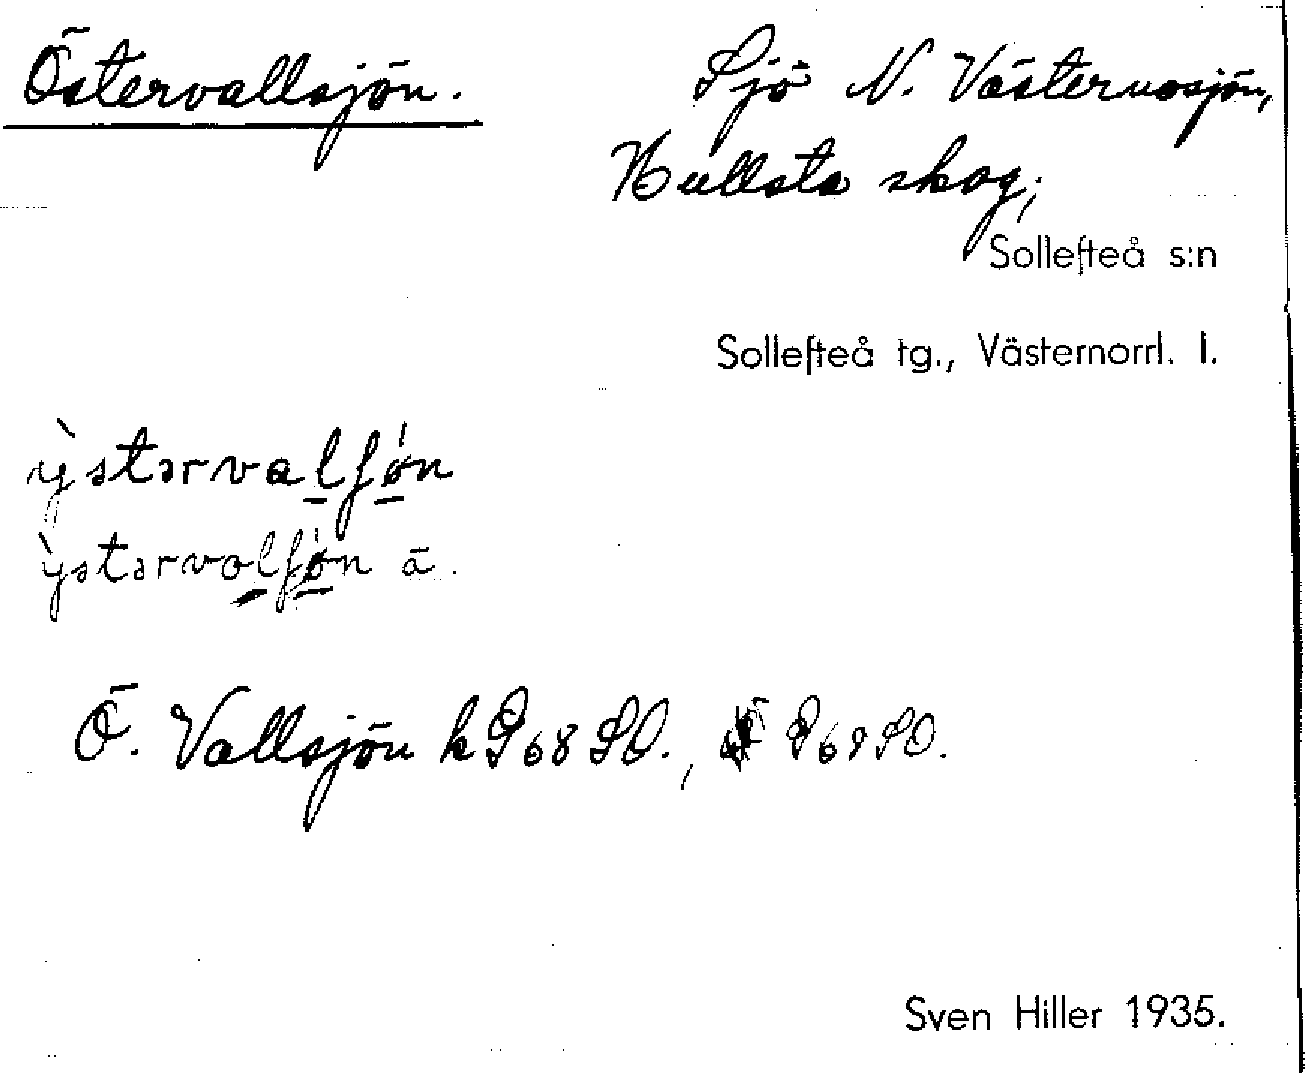 Östervallsjön.
Sjö N. Västervosjön,
Hullsta skog,
Sollefteå s:n
Sollefteå tg., Västernorrl. l.
ỳstərvalʃǿn
ỳstərvalʃǿn ä.
Ö. Vallsjön k G68 SO., G69SO.
Sven Hiller 1935.